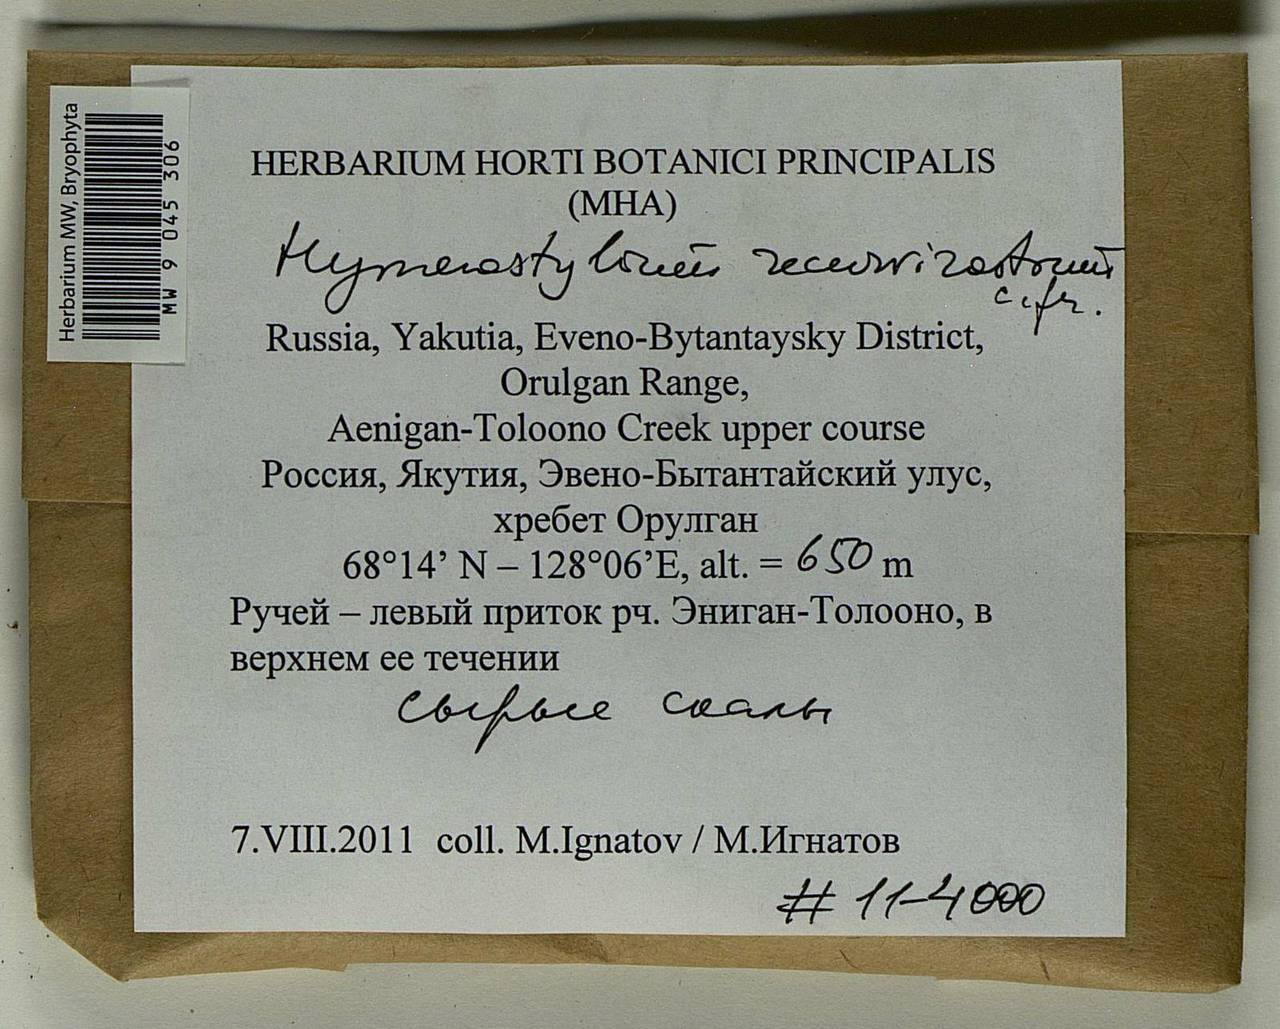 Herbarium MW, Bryophyta
MW 9 045 306
HERBARIUM HORTI BOTANICI PRINCIPALIS
(MHA)
Hymenostylium recurvirostrum
c.fr.
Russia, Yakutia, Eveno-Bytantaysky District,
Orulgan Range,
Aenigan-Toloono Creek upper course
Россия, Якутия, Эвено-Бытантайский улус,
хребет Орулган
68°14’ N – 128°06’E, alt. = 650 m
Ручей – левый приток рч. Эниган-Толооно, в
верхнем ее течении
сырые скалы
7.VIII.2011 coll. M.Ignatov / М.Игнатов
# 11-4000